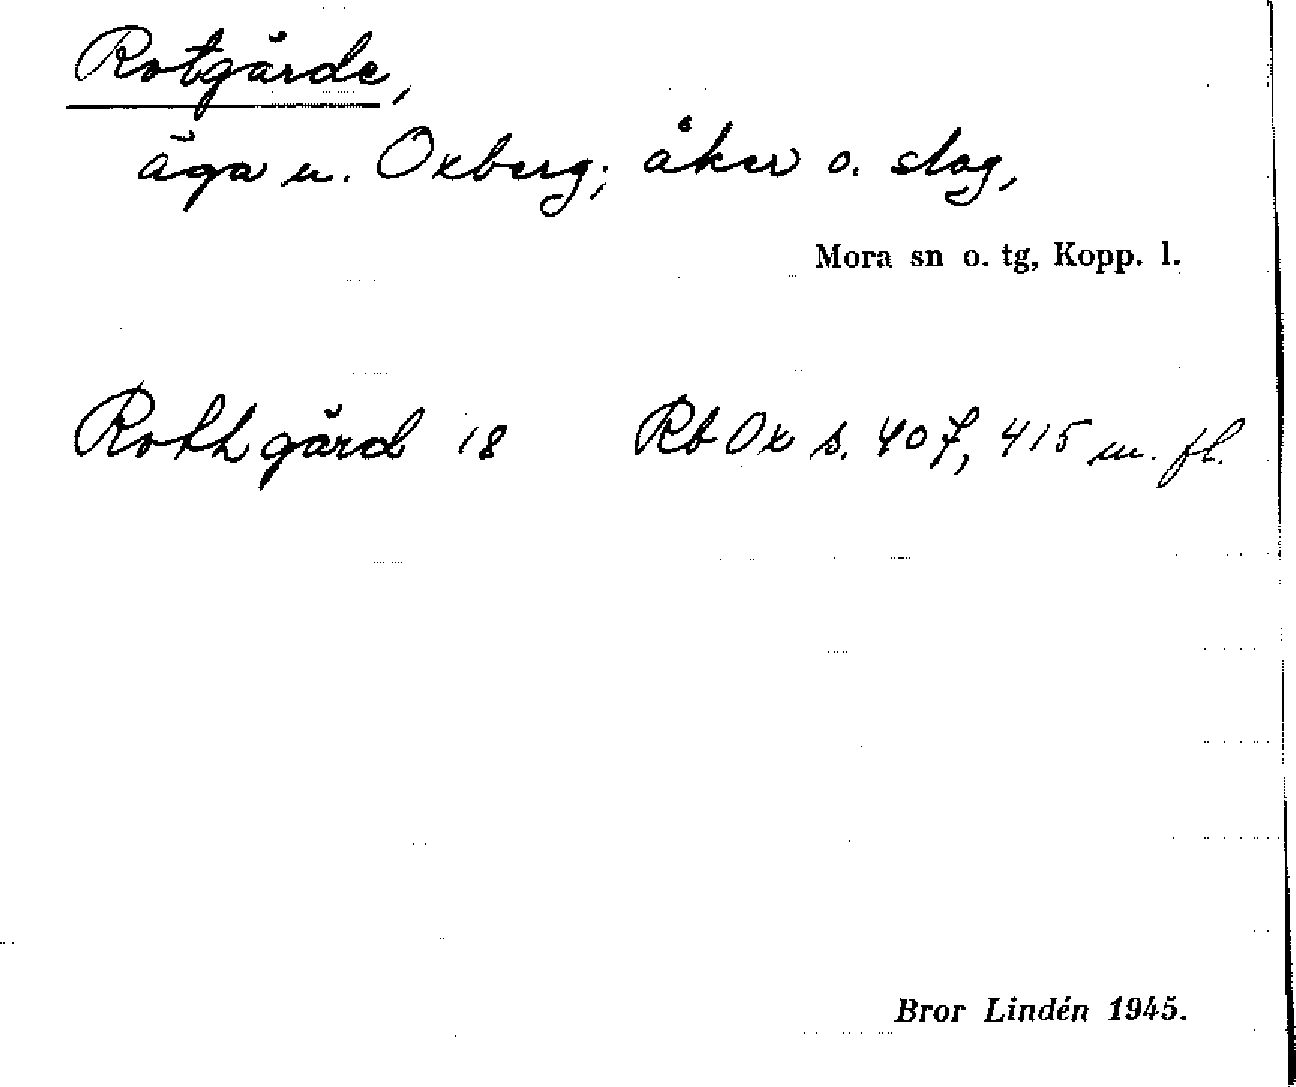 Rotgärde,
äga u. Oxberg; åker o. slog,
Mora sn o. tg, Kopp. l.
Rothgärd 18 Rb Ox s. 407, 415 m. fl.
Bror Lindén 1945.